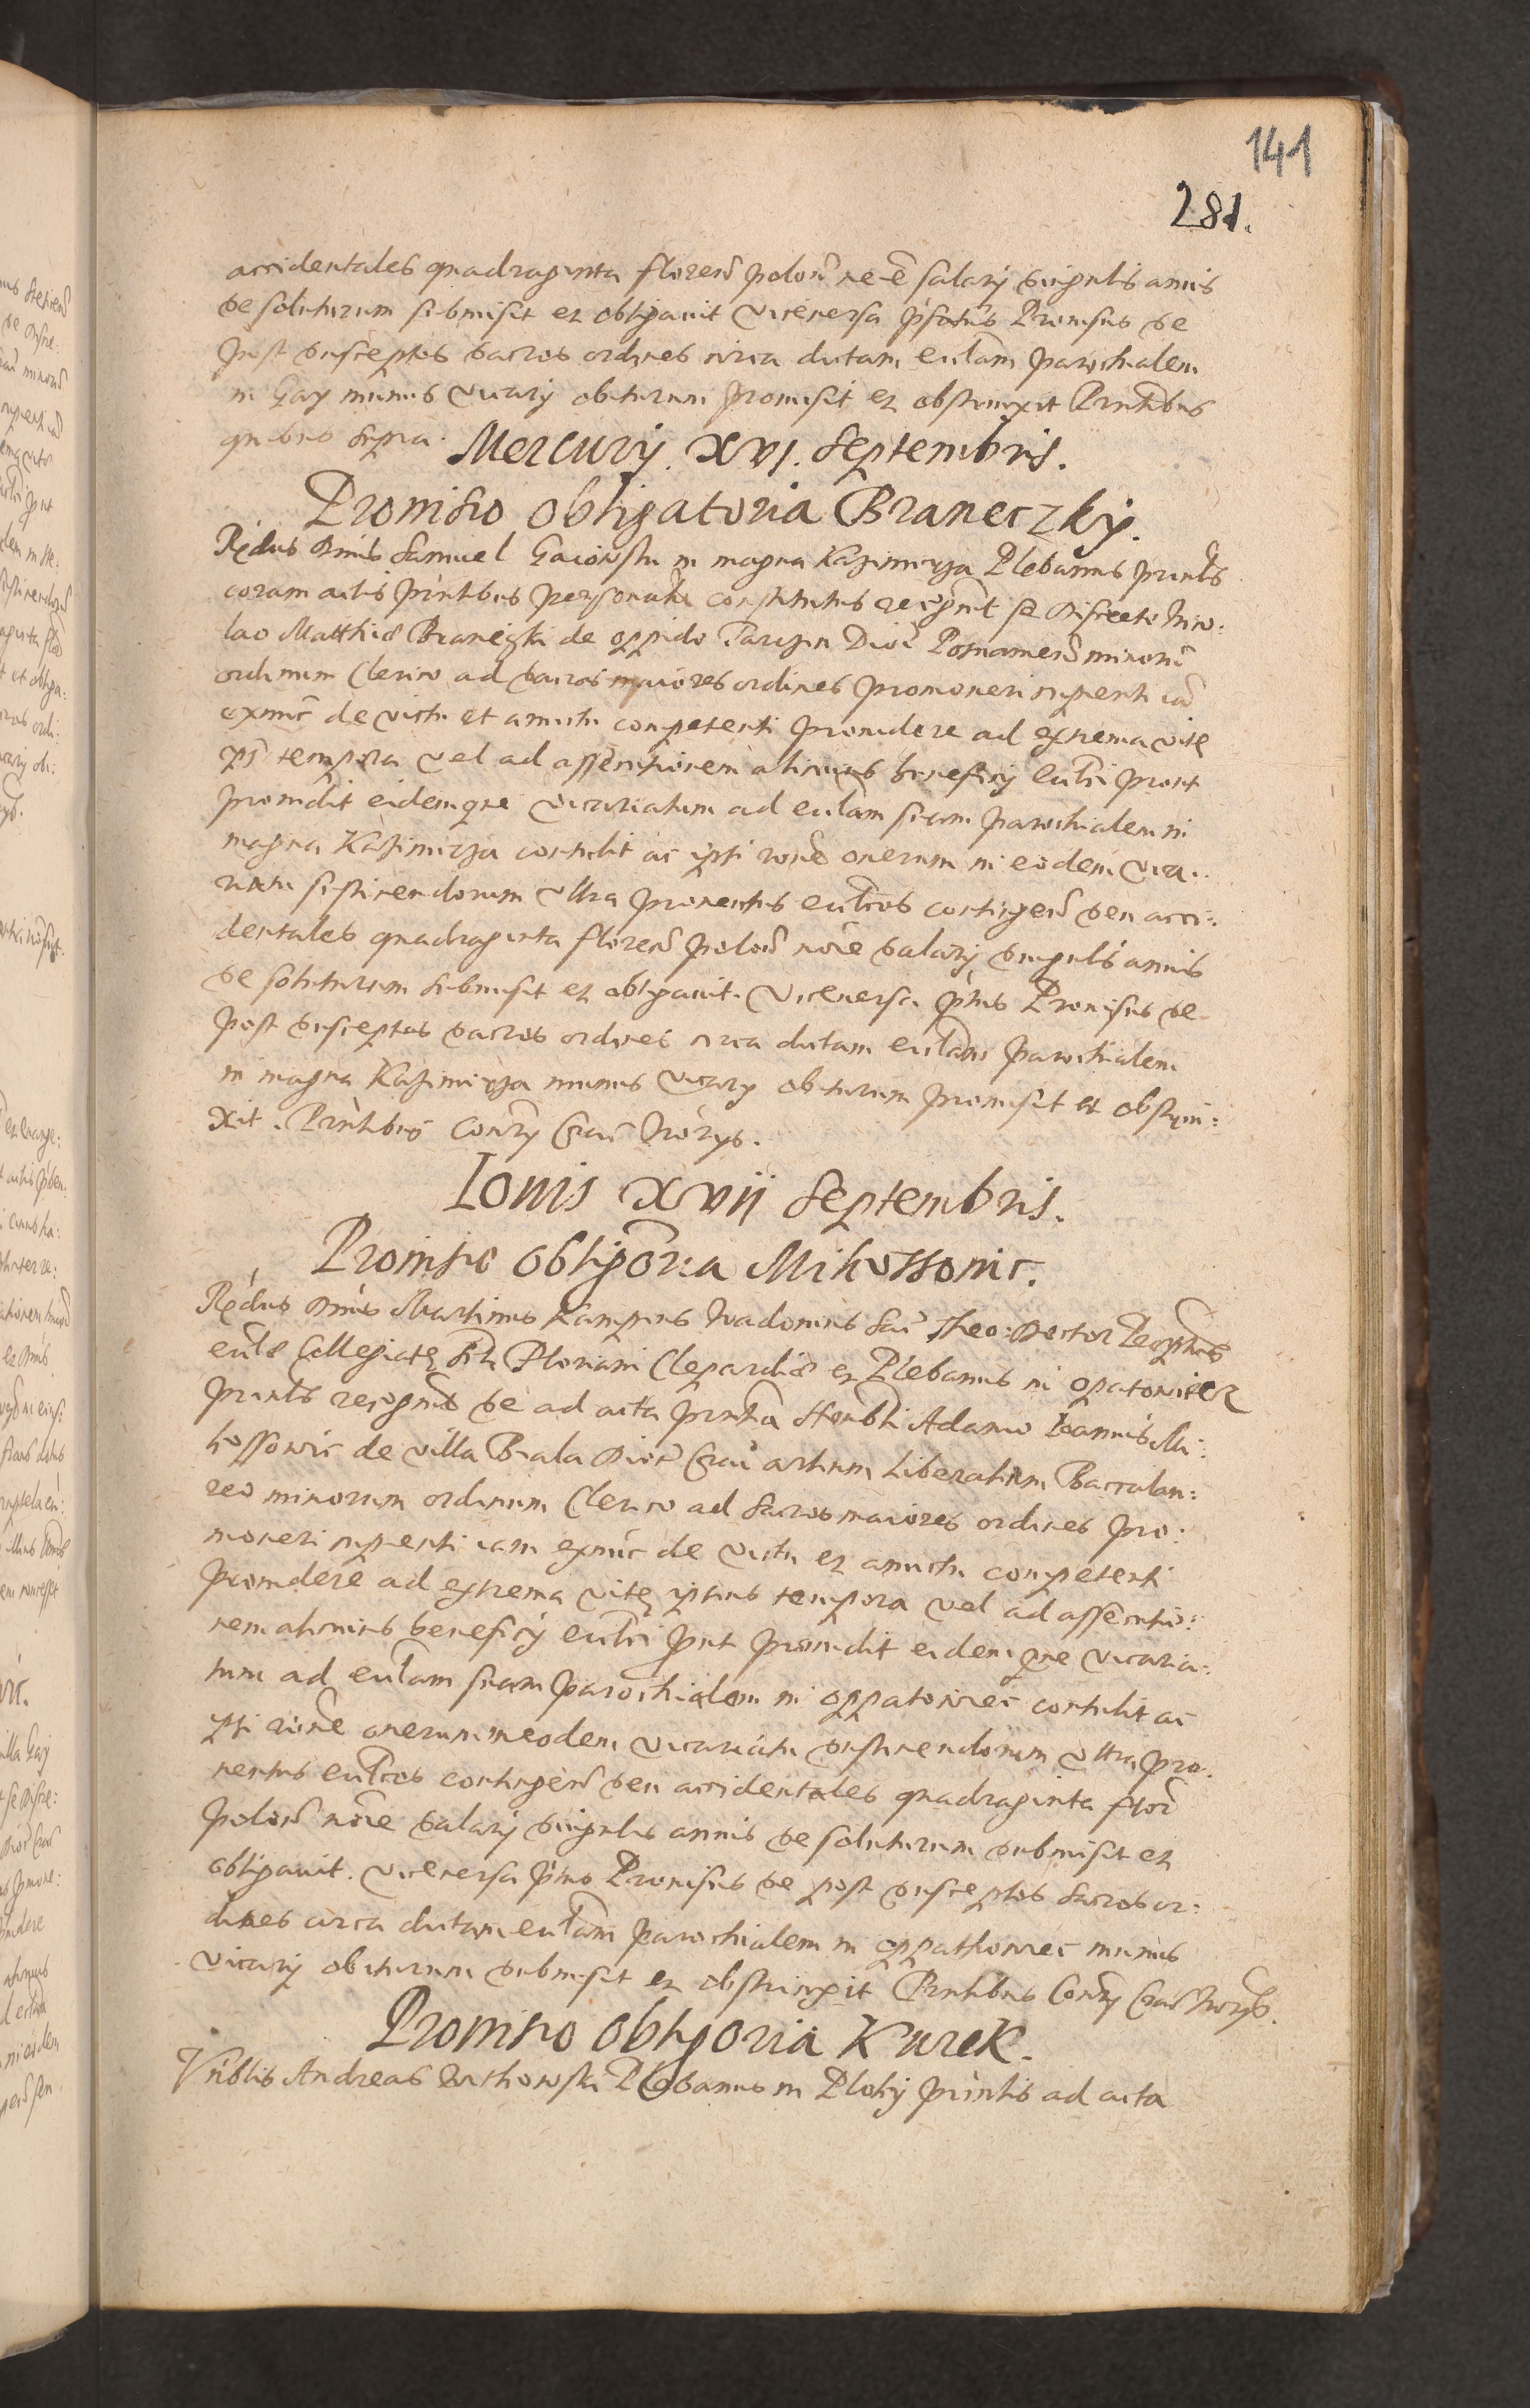 141
281.
accidentales quadraginta floren̄ polon̄ no͞e salarij singulis annis
se soluturum submisit et obligauit Viceuersa p̄fatus Prouisus se
post susceptos sacros ordines circa dictam eccl̄am parochialem
in Gay munus vicarij obiturum promisit et obstrinxit Pn̄tibus
quibus supra.
Mercurij. XVI. Septembris.
Promissio obligatoria Braneczky.
Rn̄dus Dn̄us Samuel Gaiowski in magna Kazimirza Plebanus prīnts
coram actis prīntibus personaliter constitutus recogn̄it se discreto Nico:
lao Matthiæ Braneczki de oppido Diœc̄ Posnanien̄ minorū
ordinum Clerico ad sacros maiores ordines promoueri cupienti iā
exnūc de victu et amictu competenti prouidere ad extrema vitę
ips̄ tempora vel ad assecutionem alicuius beneficij eccl̄ci prout
prouidit eidemque vicariatum ad eccl̄am suam parochialem in
magna Kazimirza contulit ac ipsi rōne onerum in eodem vica:
riatu sustinendorum vltra prouentus eccl̄cos contingen̄ seu acci:
dentales quadraginta floren̄ polon̄ nōie salarij singulis annis
se soluturum submisit et obligauit. Viceuersa p̄tus Prouisus se
post susceptos sacros ordines circa dictam eccl̄am parochialem
in magna Kazimirza munus vicarij obiturum promisit et obstrin:
xit. Prīntibus Con̄ry Crac̄ Nōrijs.
Iouis XVII Septembris.
Promissio obligōria Mikossowic.
Rn̄dus Dn̄us Martinus Kampius Vadouius Sac̄ Theo: Doctor
eccl̄æ Collegiatę Sti Floriani Clepardiæ et Plebanus in Opatowiec
prīnts recogn̄it se ad acta prīntia Hon̄bli Adamo Ioannis Mi:
kossowic de villa Biala Diœc̄ Crac̄ artium liberalium Baccalau:
reo minorum ordinum Clerico ad sacros maiores ordines pro:
moueri cupienti iam exnūc de victu et amictu competenti
prouidere ad extrema vitę ipsius tempora vel ad assecutio:
nem alicuius beneficij eccl̄ci prt̄ prouidit eidemque vicaria:
tum ad eccl̄am suam parochialem in Oppatowiec contulit ac
ipsi rōne onerum in eodem vicariatu sustinendorum vltra pro:
uentus eccl̄cos contingen̄ seu accidentales quadraginta flor̄
polon̄ nōie salarij singulis annis se soluturum submisit et
obligauit. Viceuersa p̄tus Prouisus se post susceptos sacros or:
dines circa dictam eccl̄am parochialem in Oppathowiec munus
vicarij obiturum submisit et obstrinxit Prīntibus Con̄ry Crac̄ Nōrijs.
Promissio obligōria Kurek.
Vn̄blis Andreas Plebanus in Ploky prīntis ad acta